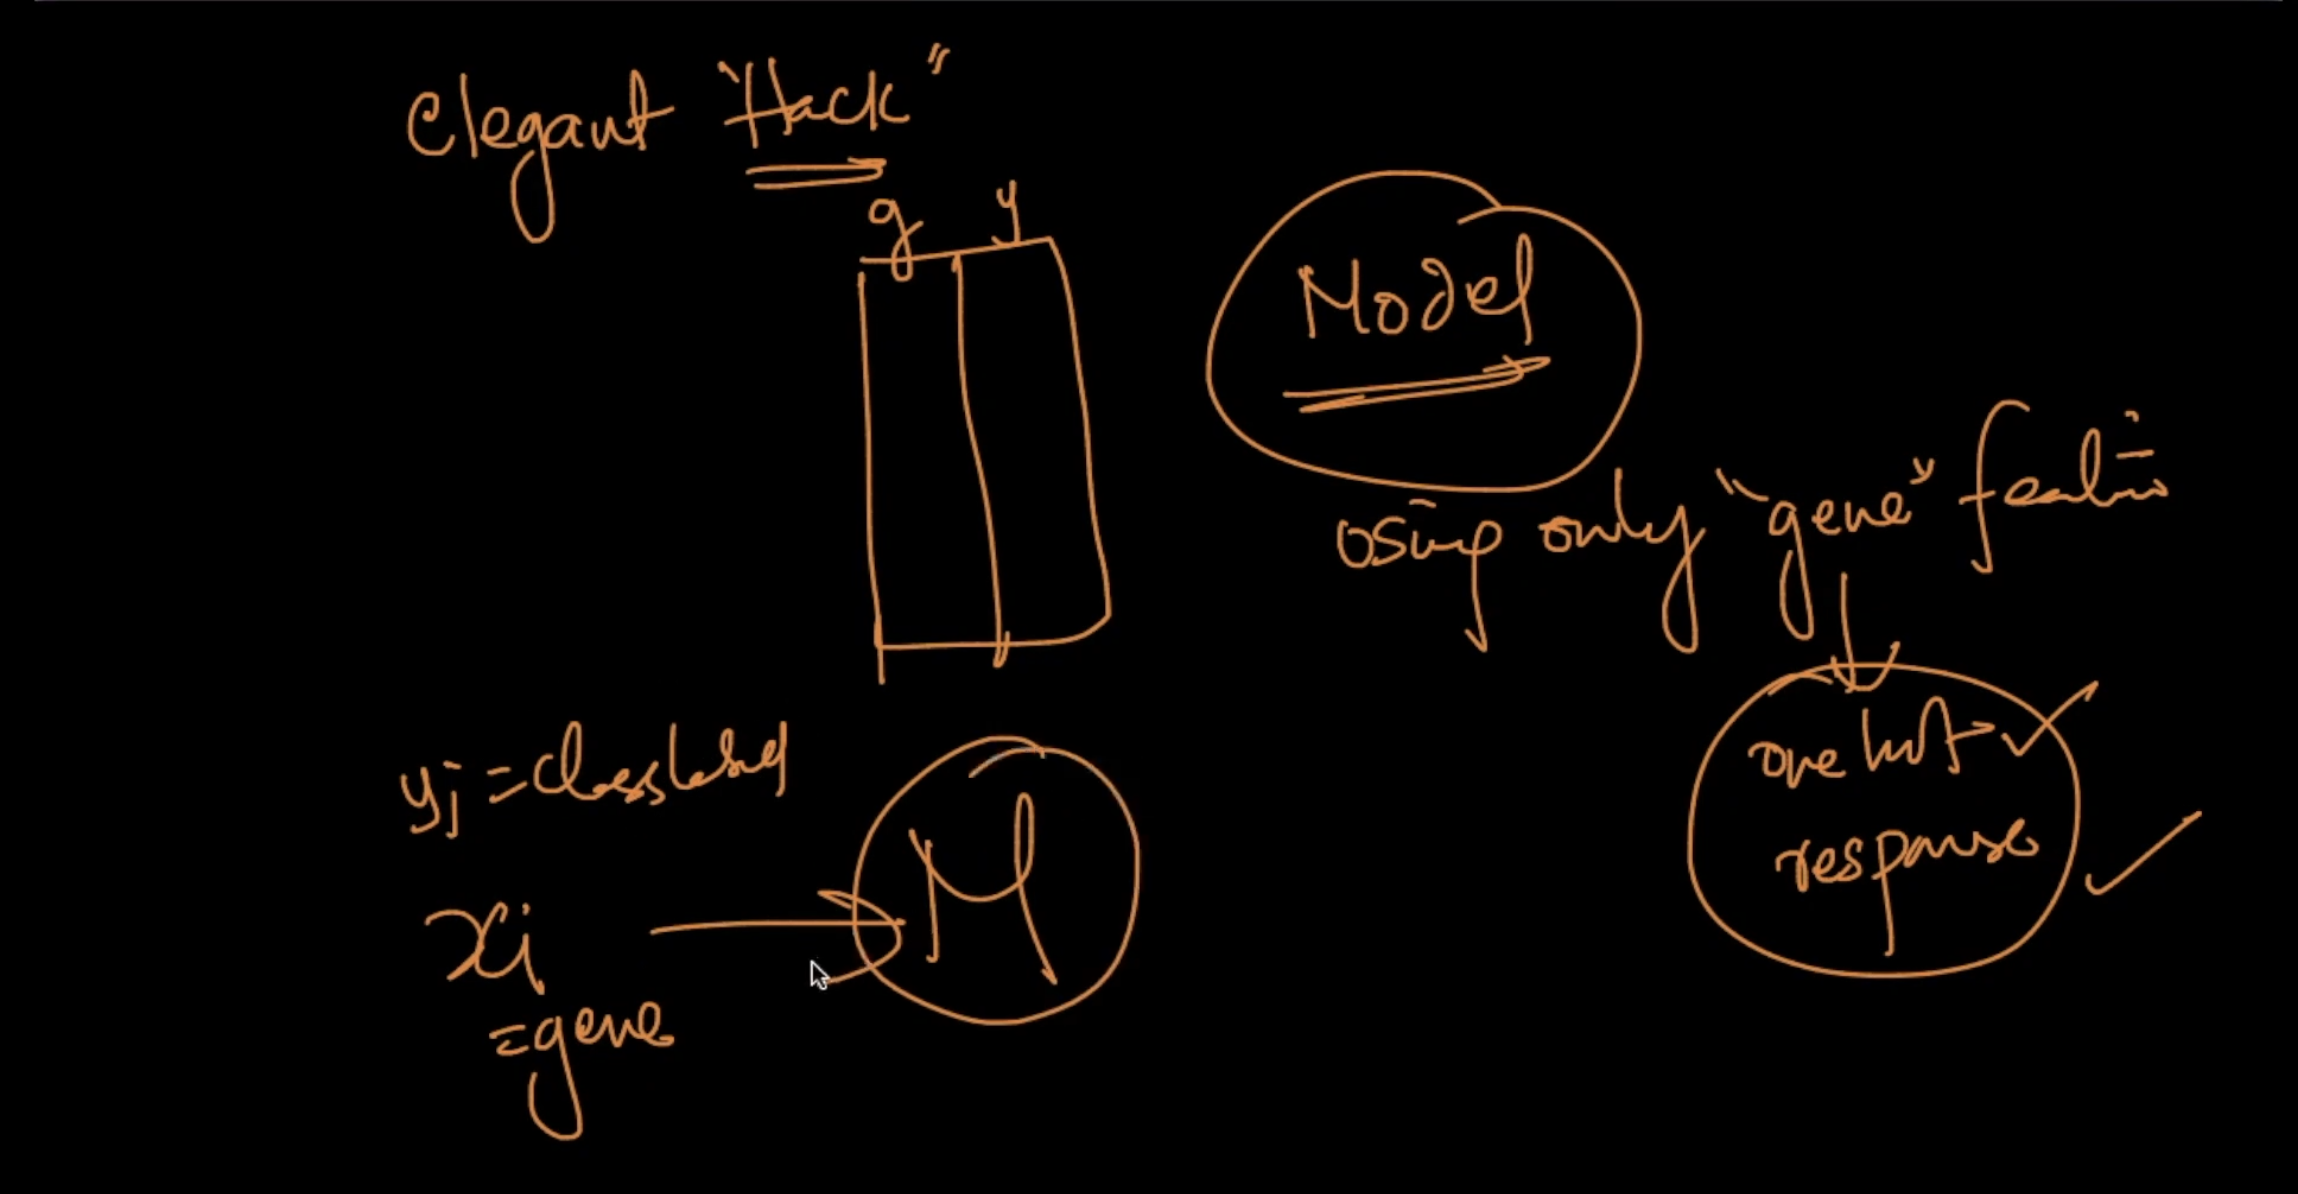 Elegant "Hack"
g y
Model
using only "gene" feature
one hot
response
yj = class label
xi
= gene
M